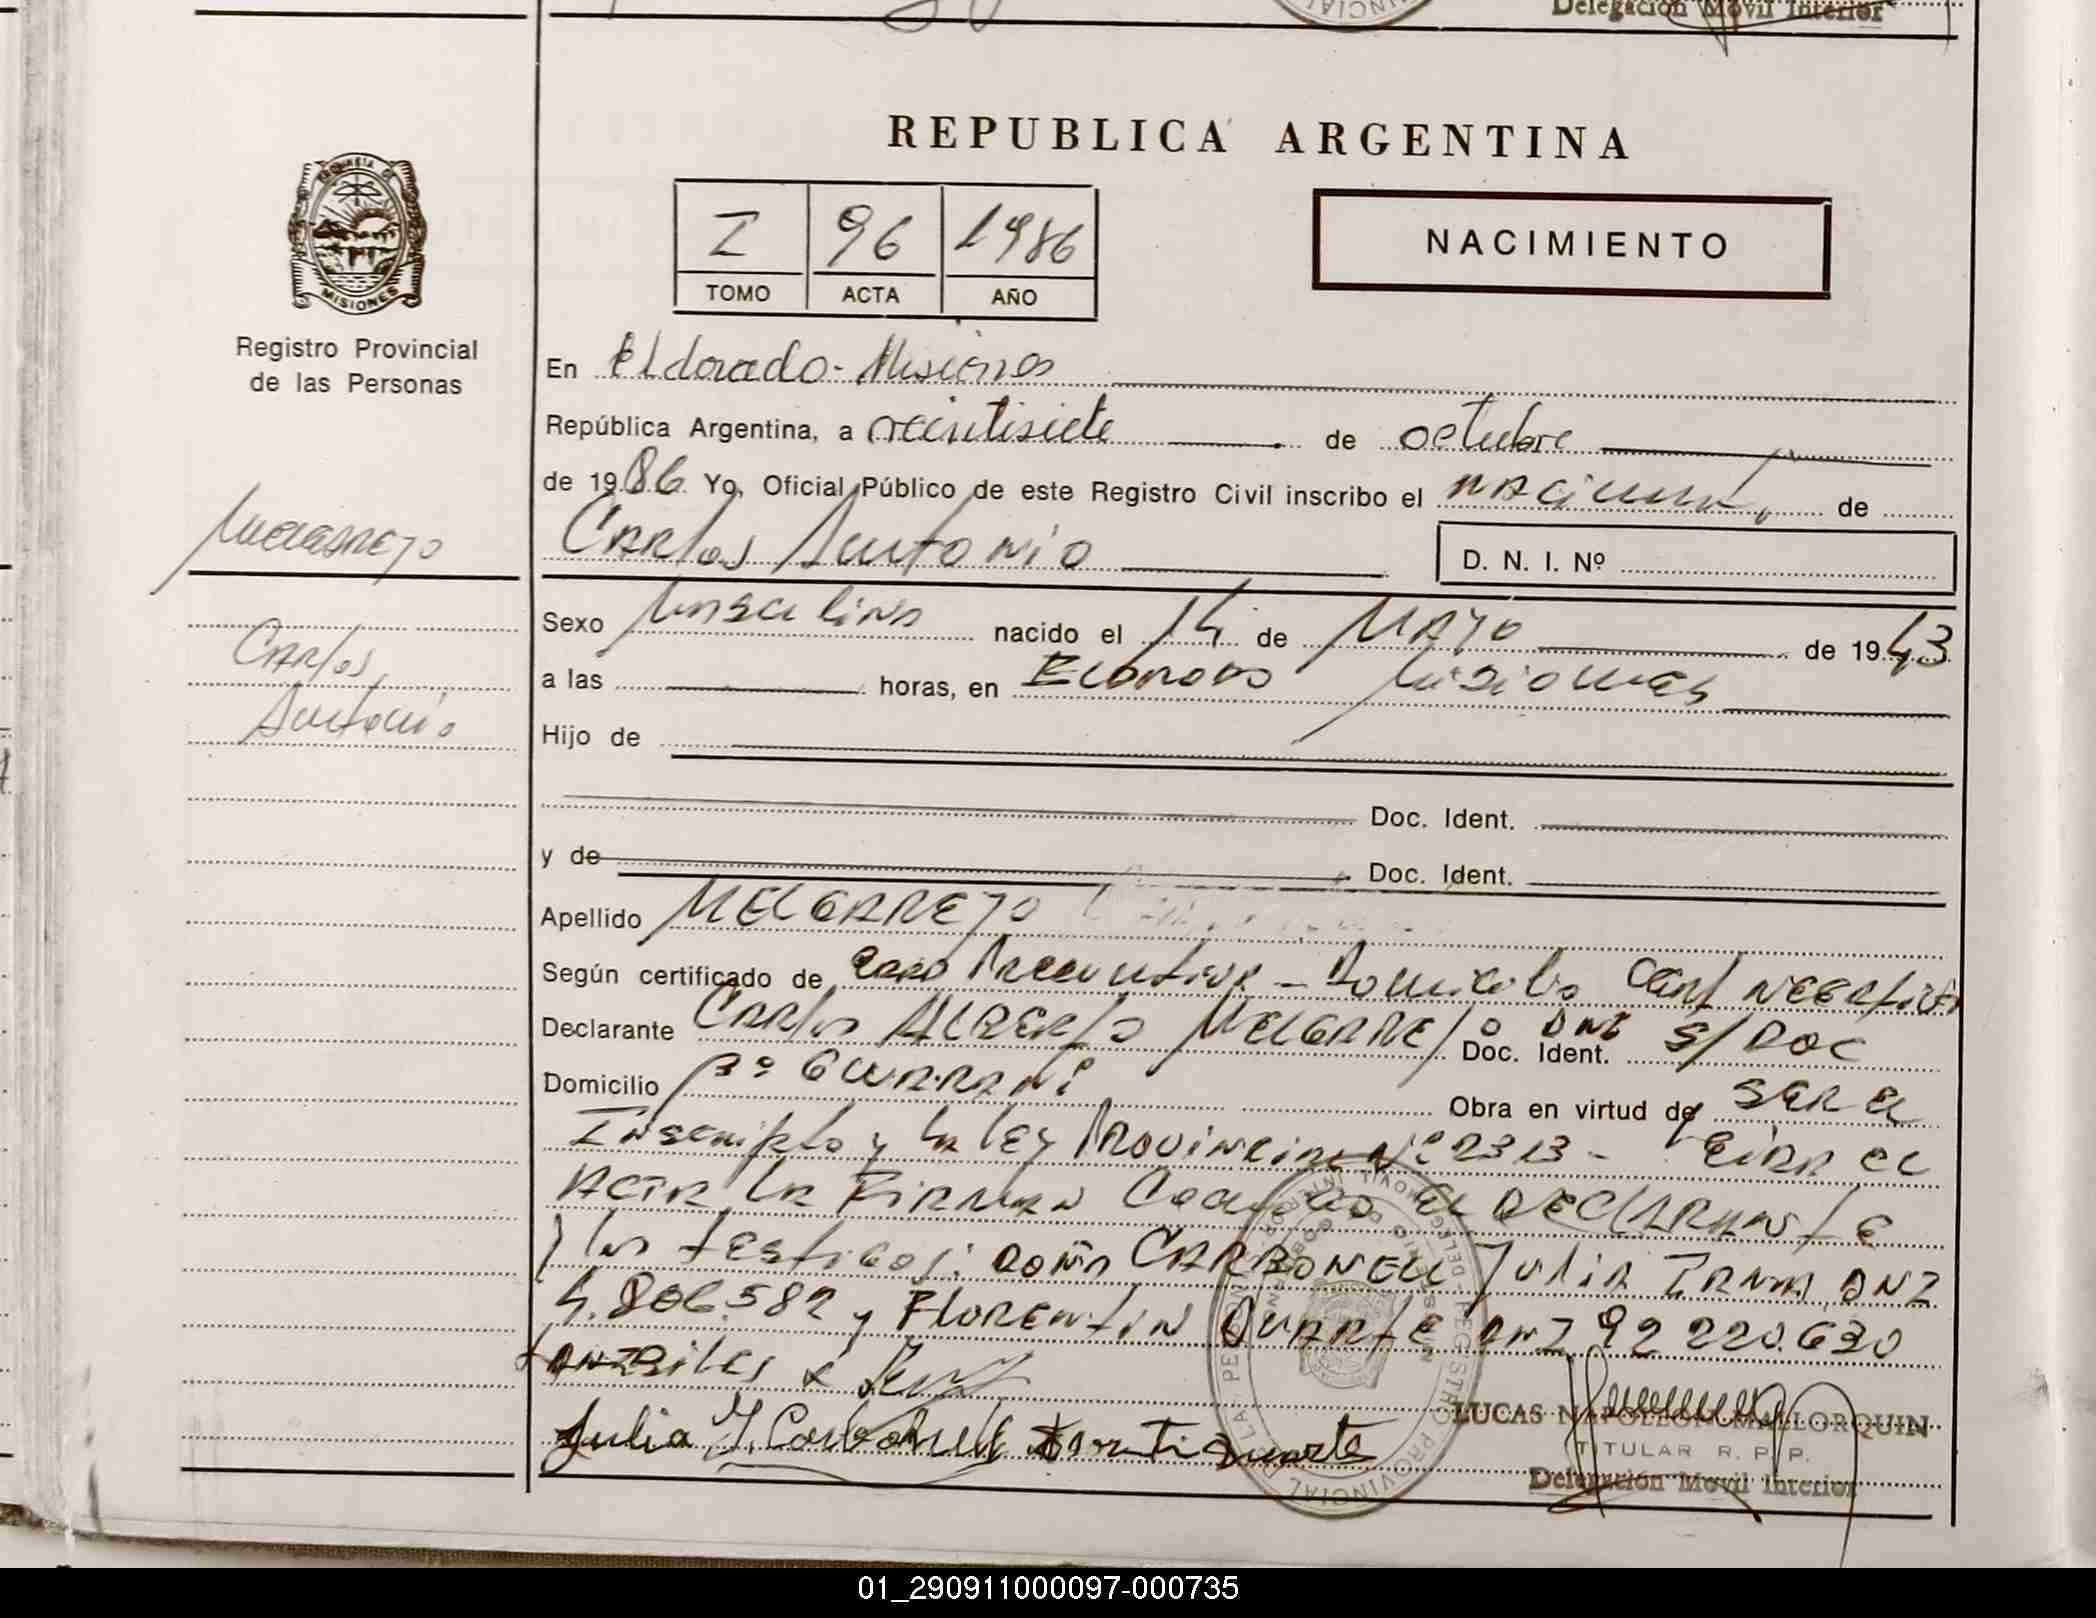 Delegación Movil Interior
REPUBLICA ARGENTINA
I 96 1986
TOMO ACTA AÑO
NACIMIENTO
PROVINCIA DE
MISIONES
Registro Provincial
de las Personas
En Eldorado - Misiones
República Argentina, a veintisiete de octubre
de 1986 Yo, Oficial Público de este Registro Civil inscribo el nacimint. de
Melgarejo
Carlos Antonio
D. N. I. Nº
Carlos
Antonio
Sexo Masculino nacido el 14 de Mayo de 1943
a las horas, en Eldorado Misiones
Hijo de
Doc. Ident.
y de Doc. Ident.
Apellido MELGAREJO
Según certificado de Preventiva - Domicilio Cert Negativa
Declarante Carlos Alberto Melgarejo Doc. Ident. DNI S/Doc
Domicilio Bº Guarani Obra en virtud de ser el
Inscripto y la ley Provincial Nº 2313 -
Acta la Firman el Declarante
y los testigos: Doña Carbonell Julia Irma DNI
4.806.582 y Florentin Duarte DNI 92 220.630
Julia I. Carbonell Duarte
LUCAS NAPOLEON MALLORQUIN
TITULAR R. P. P.
Delegación Movil Interior
01_290911000097-000735